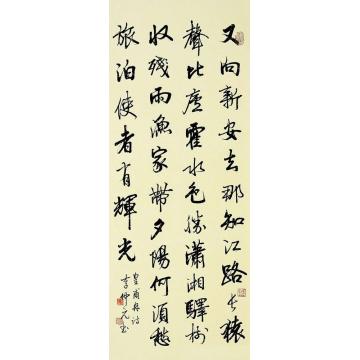 又向新安去那知江路長猿
聲比廬霍水色勝瀟湘驛樹
收殘雨漁家帶夕陽何須愁
旅泊使者有輝光
皇甫冉詩
李仲元書